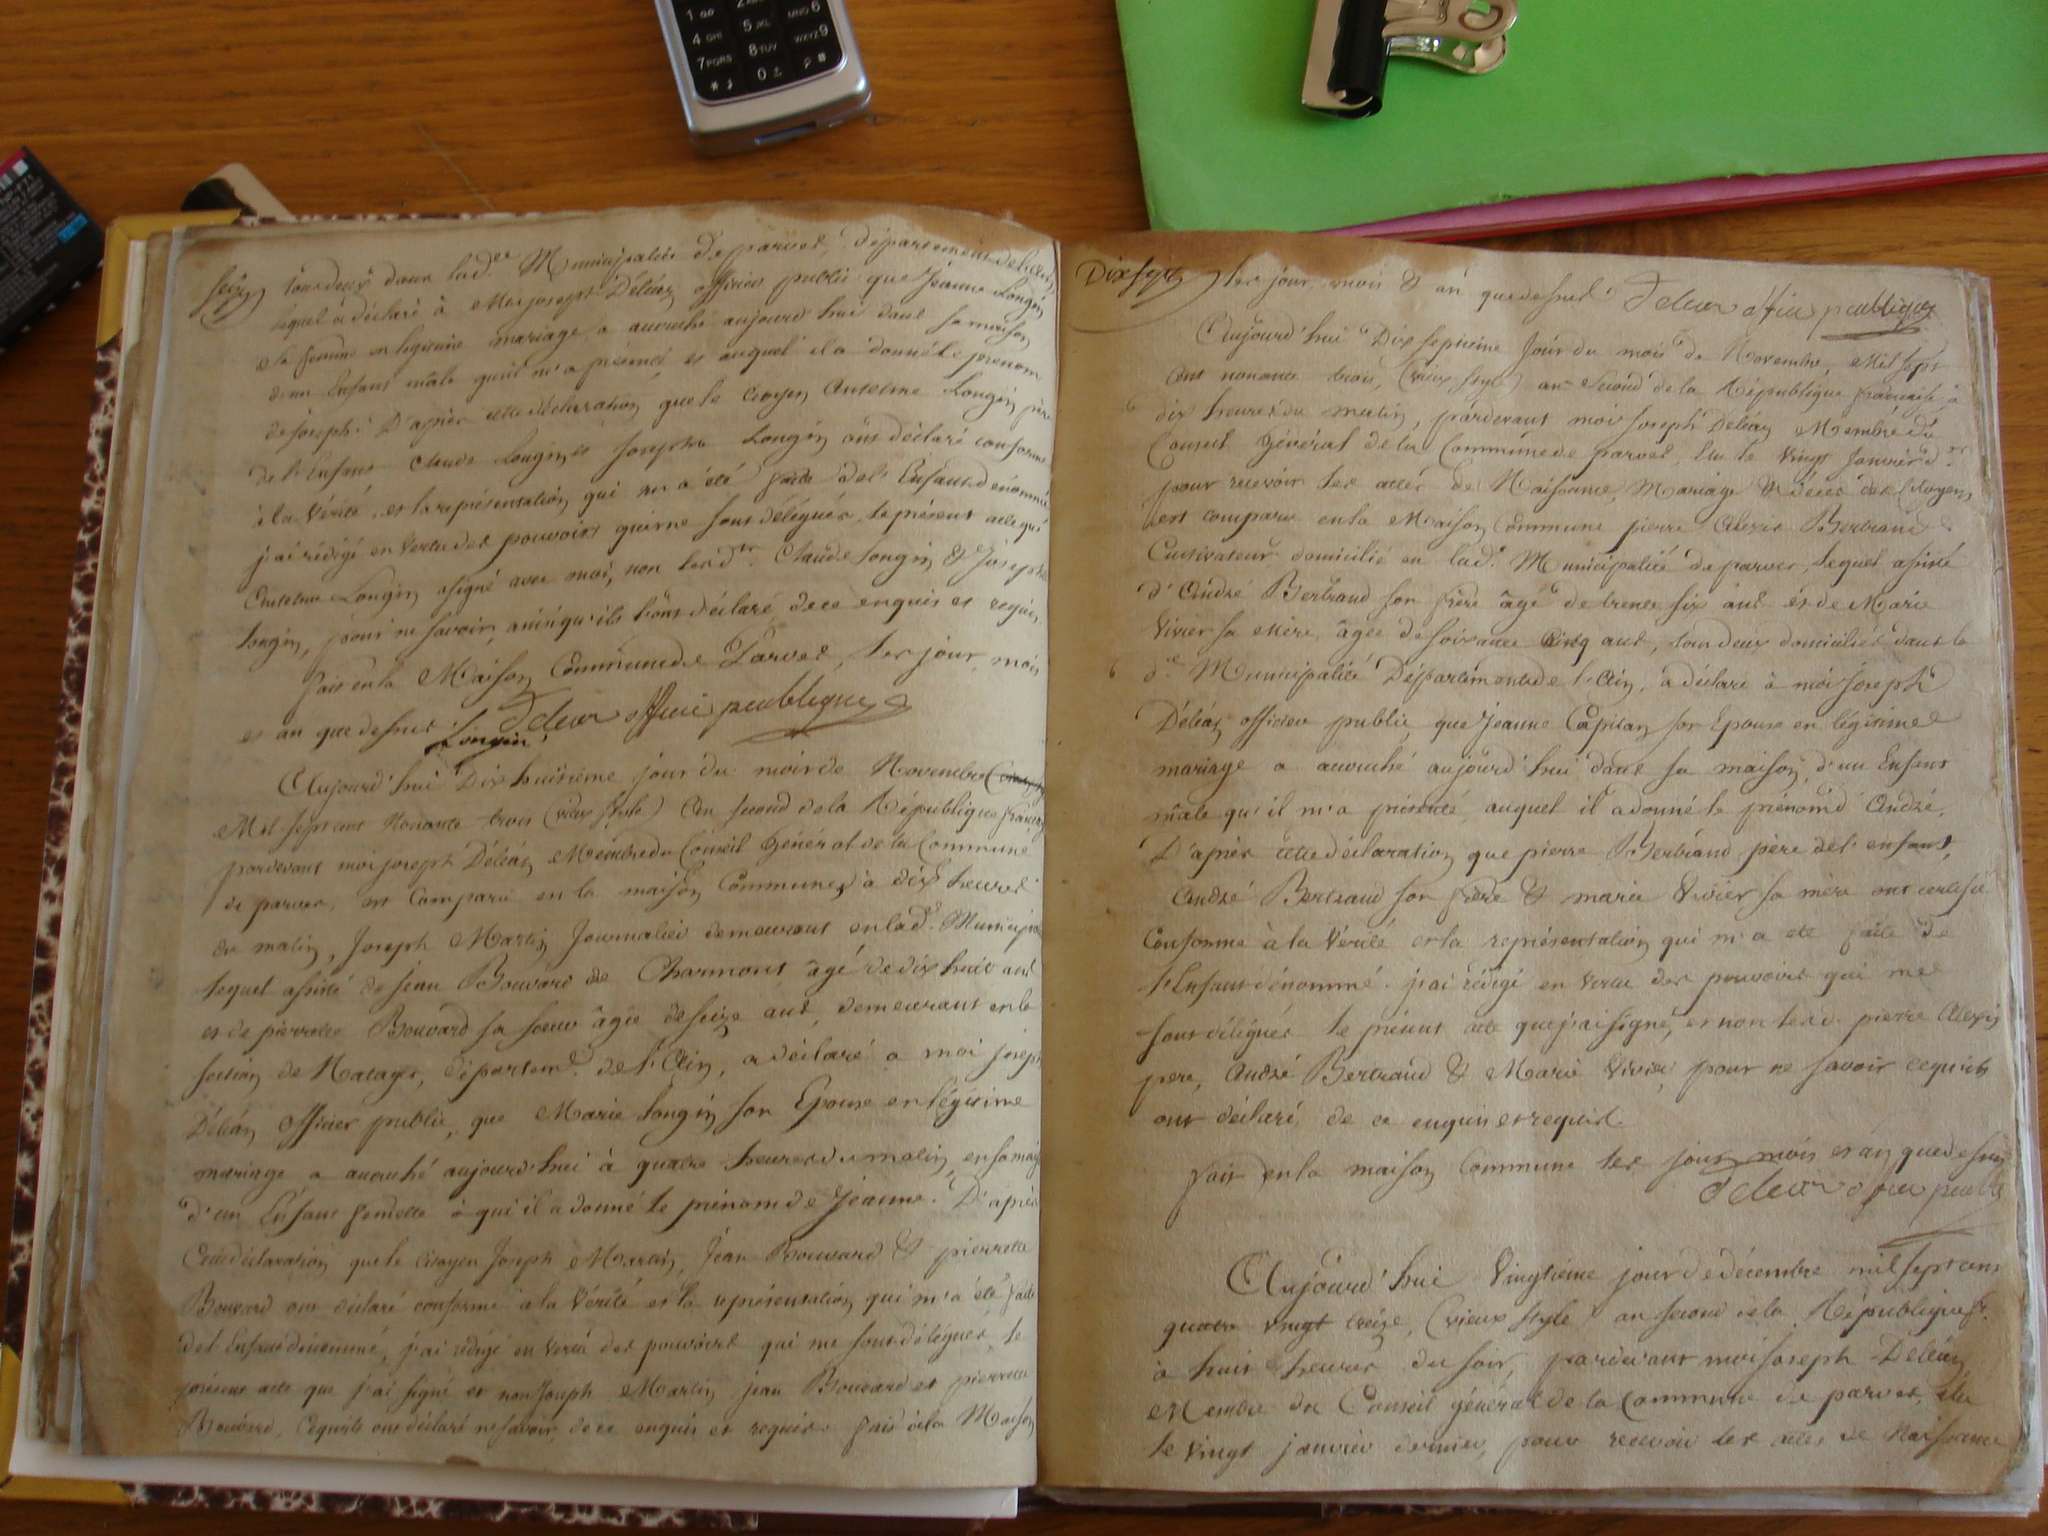 1 2
4 GHI 5 JKL MNO 6
7 PQRS 8 TUV WXYZ 9
* 0 #
seize tous deux dans lad.e Municipalité de parves, département de l'ain,
lequel a déclaré à Moi joseph Déléaz officier public que Jeanne Longin
sa femme en légitime mariage a accouché aujourd'hui dans sa maison
d'un Enfant mâle qu'il m'a présenté et auquel il a donné le prenom
de joseph. D'après cette déclaration que le Citoyen Anthelme Longin père
de l'Enfant Claude Longin et Josephte Longin ont déclaré conforme
à la Vérité, et la représentation qui m'a été faite de l'Enfant dénommé
j'ai rédigé en vertu des pouvoirs qui me sont délégués, le présent acte qui
Anthelme Longin a signé avec moi, non lesd. Claude Longin & Josephte
Longin, pour ne savoir, ainsi qu'ils l'ont déclaré de ce enquis et requis
fait en la Maison Commune de Parves, les jour, mois
et an que dessus Deleaz officié publique
Longin
Aujourd'hui Dix huitième jour du mois de Novembre
Mil sept cent Nonante trois (vieux style) An second de la République française
pardevant moi joseph Déléaz Membre du Conseil Général de la Commune
de parves, est Comparu en la maison Commune à dix heures
du matin, Joseph Martin Journalier demeurant en lad.e Municipalité
lequel assisté de jean Bouvard de Charmont âgé de dix huit ans
et de pierrette Bouvard sa soeur âgée de seize ans, demeurant en la
section de Natages, départem.t de l'Ain, a déclaré a moi joseph
Déléaz officier public, que Marie Longin son Epouse en légitime
mariage a accouché aujourd'hui à quatre heures du matin, en sa maison
d'un Enfant femelle à qui il a donné le prénom de Jeanne. D'après
Cette déclaration que le citoyen Joseph Martin, Jean Bouvard & pierrette
Bouvard ont déclaré conforme a la Vérité et la représentation qui m'a été faite
de l'Enfant dénommé, j'ai rédigé en vertu des pouvoirs qui me sont délégués, le
présent acte que j'ai signé et non Joseph Martin jean Bouvard et pierrette
Bouvard, Cequ'ils ont déclaré ne savoir, de ce enquis et requis. fait en la Maison
Dix sept les jour, mois & an que dessus Deleaz officié publique
Aujourd'hui Dix septieme Jour du mois de Novembre, Mil sept
cent nonante trois, (vieux style) an second de la République française, à
dix heures du matin, pardevant moi Joseph Déléaz Membre du
Conseil Général de la Commune de parves, Elu le Vingt Janvier d.er
pour recevoir les actes de Naissance, Mariage & décès des Citoyens,
est comparu en la Maison Commune pierre Alexis Bertrand
Cultivateur domicilié en lad.e Municipalité de parves, lequel assisté
d'André Bertrand son frère âgé de trente six ans et de Marie
Vivier sa Mère, âgée de soixante cinq ans, tous deux domiciliés dans la
d.e Municipalité Département de l'Ain, a déclaré à moi Joseph
Déléaz officier public, que Jeanne Capitan son Epouse en légitime
mariage a accouché aujourd'hui dans sa maison, d'un Enfant
mâle qu'il m'a présenté, auquel il a donné le prénom d'André.
D'après cette déclaration que pierre Bertrand père de l'enfant,
André Bertrand son frère & marie Vivier sa mère ont certifié
Conforme à la Vérité et la représentation qui m'a été faite de
l'Enfant dénommé. j'ai rédigé en vertu des pouvoirs qui me
sont délégués le présent acte que j'ai signé, et non lesd. pierre Alexis
pere, André Bertrand & Marie Vivier, pour ne savoir cequ'ils
ont déclaré, de ce enquis et requis.
fait en la maison Commune les jour, mois et an que dessus
Deleaz officié public
Aujourd'hui Vingtieme jour de décembre mil sept cens
quatre vingt treize, (vieux style) an second de la République f.se
à huit heures du soir, pardevant moi Joseph Déléaz
Membre du Conseil général de la Commune de parves, élu
le vingt janvier dernier, pour recevoir les actes de Naissance